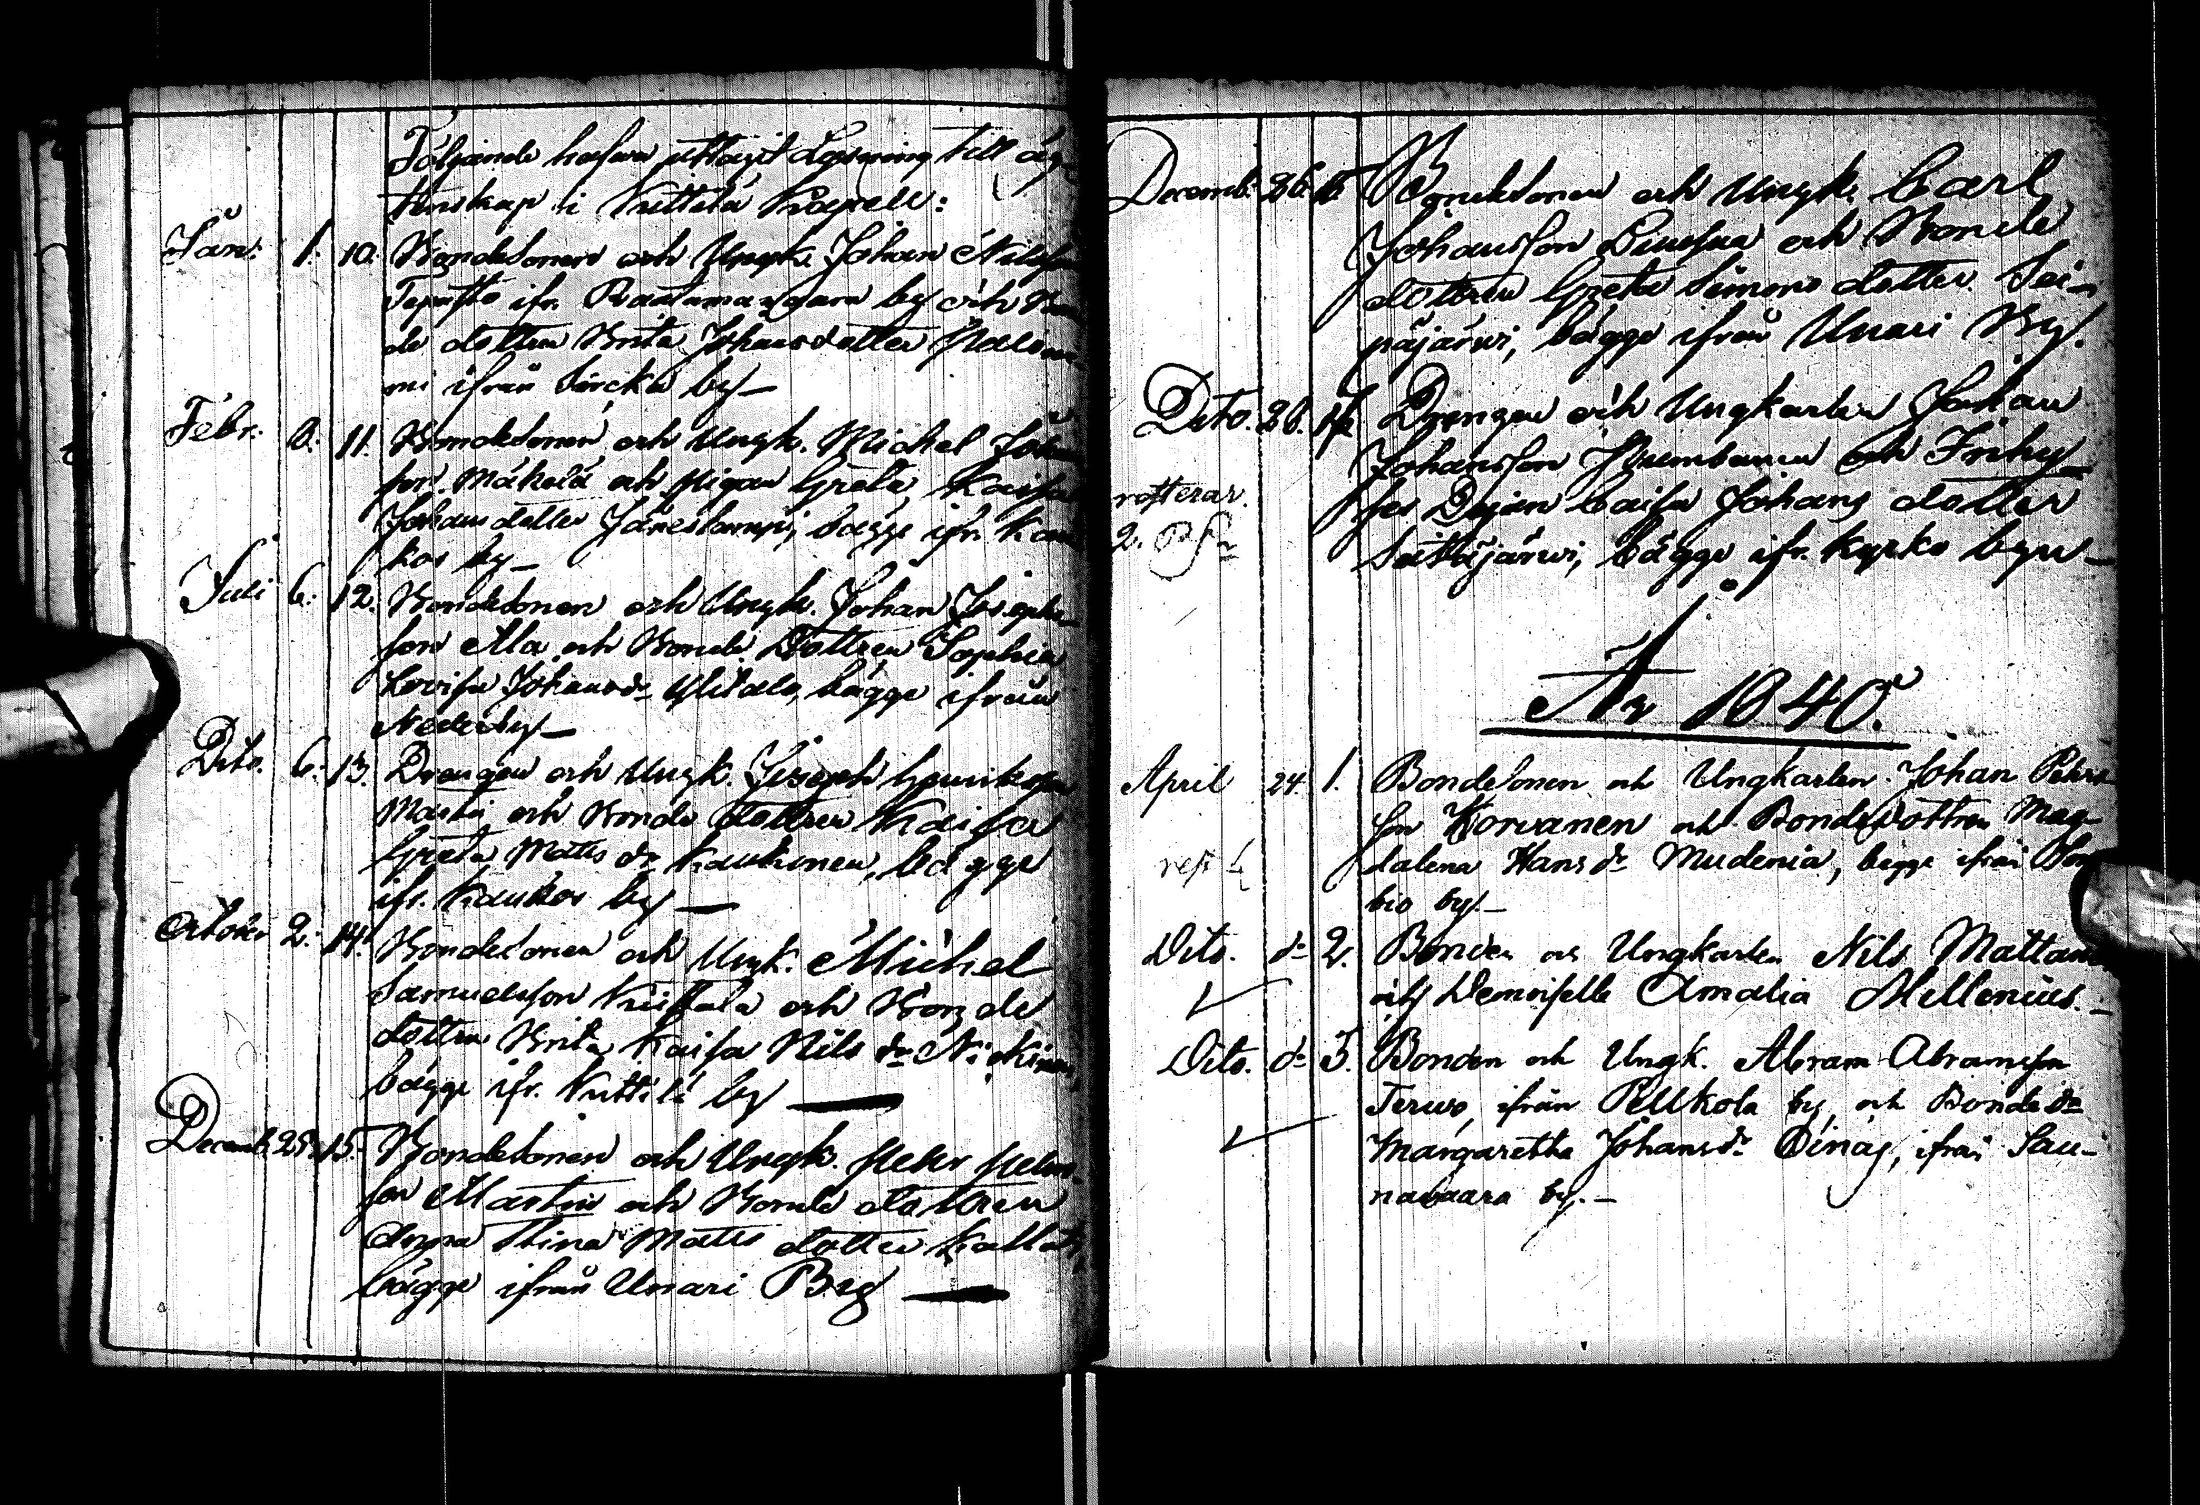 Följande hafva uttagit Lysning till äg-
tenskap i Kittilä Kapell:
Jan: 1. 10. Bondesonen och Ungk. Johan Nilsson
ifr. Rautuswaara by och Bon
de dottren Brita Johansdotter
mi ifrån Sircka by—
Febr. 8. 11. Bondesonen och Ungk. Michel Johan
son Mäkelä och Pigan Greta Kaisa
Johansdotter Jäneslampi, bägge ifr. Kau
kos by—
Juli 6. 12. Bondesonen och Ungk. Johan Josephs-
son Ala och Bonde Dottren Sophia
Lovisa Johansdr Ylitalo, bägge ifrån
Nederby—
Dito. 6. 13. Drengen och Ungk. Joseph Henriksson
och Bonde Dottren Kaisa
Greta Matts dr Kaukonen, bägge
ifr. Kaukos by—
October 2. 14. Bondesonen och Ungk. Michel
Samuelsson Kittilä och Bonde
dottren Brita Kaisa Nils dr
bägge ifr. Kittilä by—
Decemb. 25. 15. Bondesonen och Ungk. Pehr Pehrs-
son Martin och Bonde dottren
Anna Stina Matts dotter
bägge ifrån Unari By—
Decemb. 26. 16. Bondesonen och Ungk. Carl
Johansson och Bonde
dottren Greta Simons dotter Sei-
päjärwi, bägge ifrån Unari By.
Dito. 28. 17. Drengen och Ungkarlen Johan
Johansson och Inhy-
ses Pigan Caisa Johans dotter
resterar
Sattajärwi, bägge ifr. Kyrko byn—
2.
År 1840.
April 24. 1. Bondesonen och Ungkarlen Johan Pehrs-
son Korvanen och Bondedottren Mag-
dalena Hansdr Mudenia, bägge ifrån Som
rest
bio by.—
Dito. do 2. Bonden och Ungkarlen Nils Mattanen
och Demoiselle Amalia Mellenius.—
Dito. do 3. Bonden och Ungk. Abram Abramsson
Terwo, ifrån Pelkola by, och Bondedr
Margaretha Johansdr Oinas, ifrån Sau-
navaara by.—